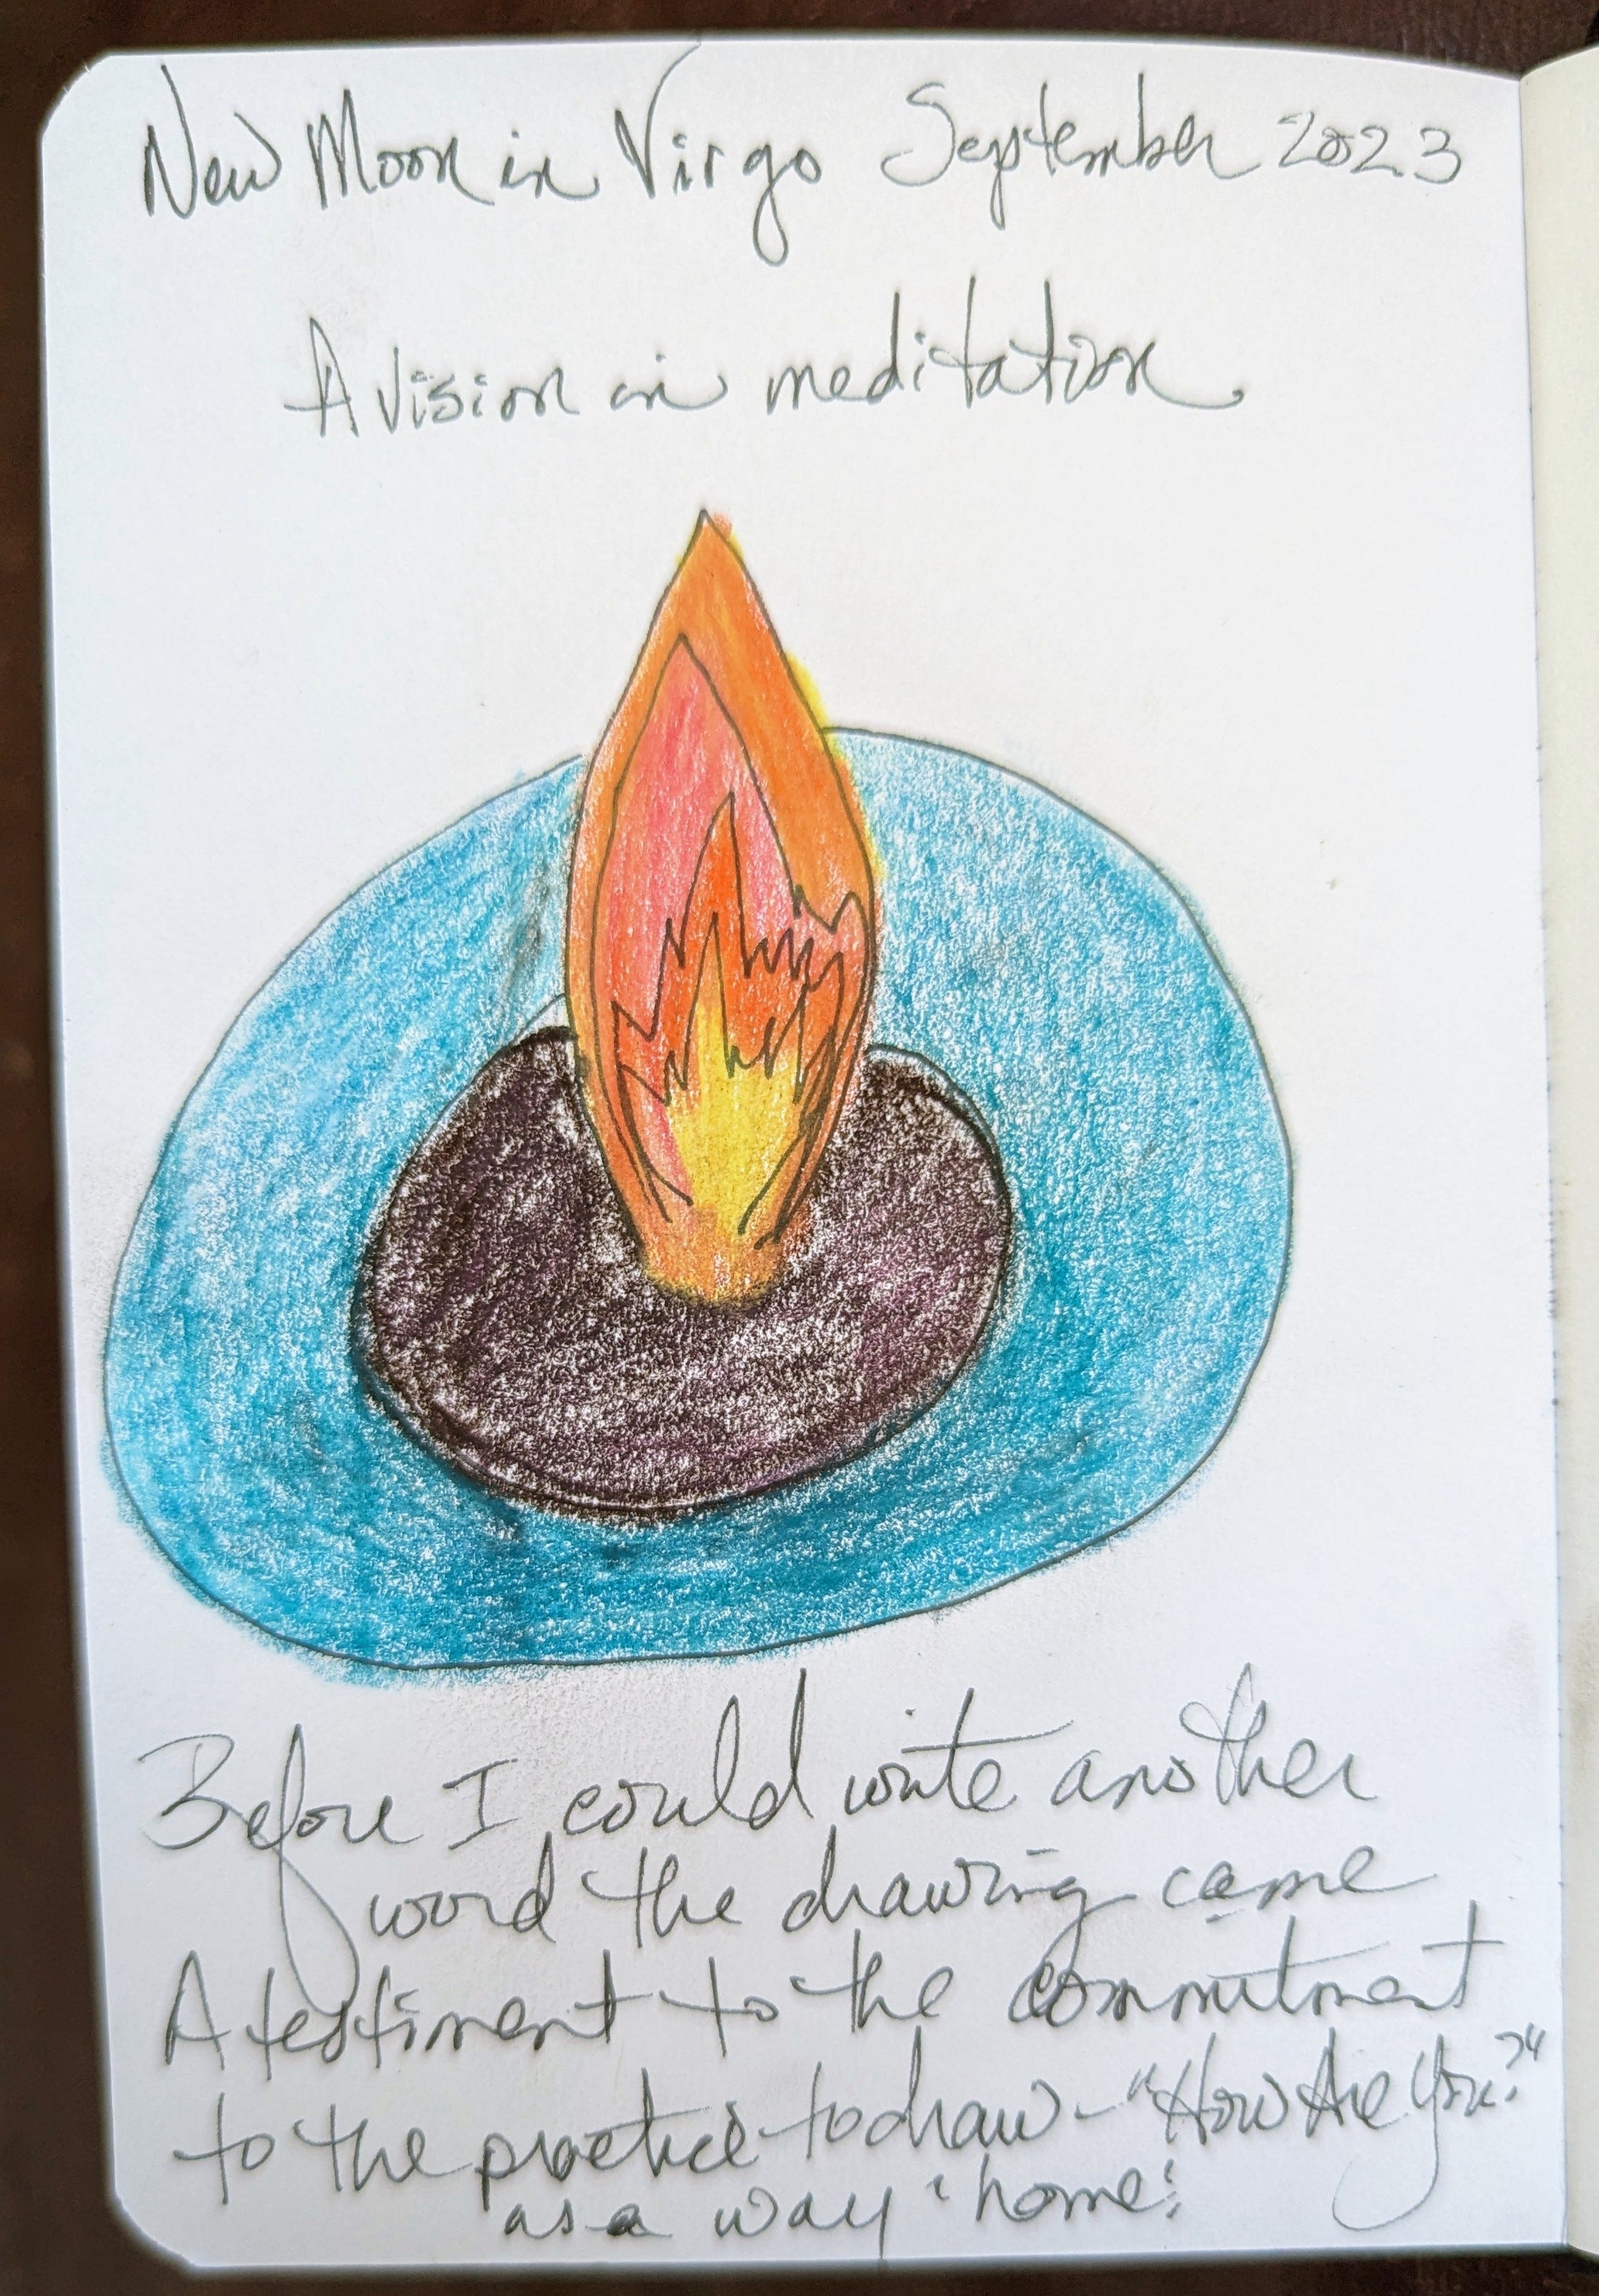 New Moon in Virgo September 2023
A vision in meditation
Before I could write another
word the drawing came
A testiment to the commitment
to the practice to draw - "How Are You?"
as a way 'home'.